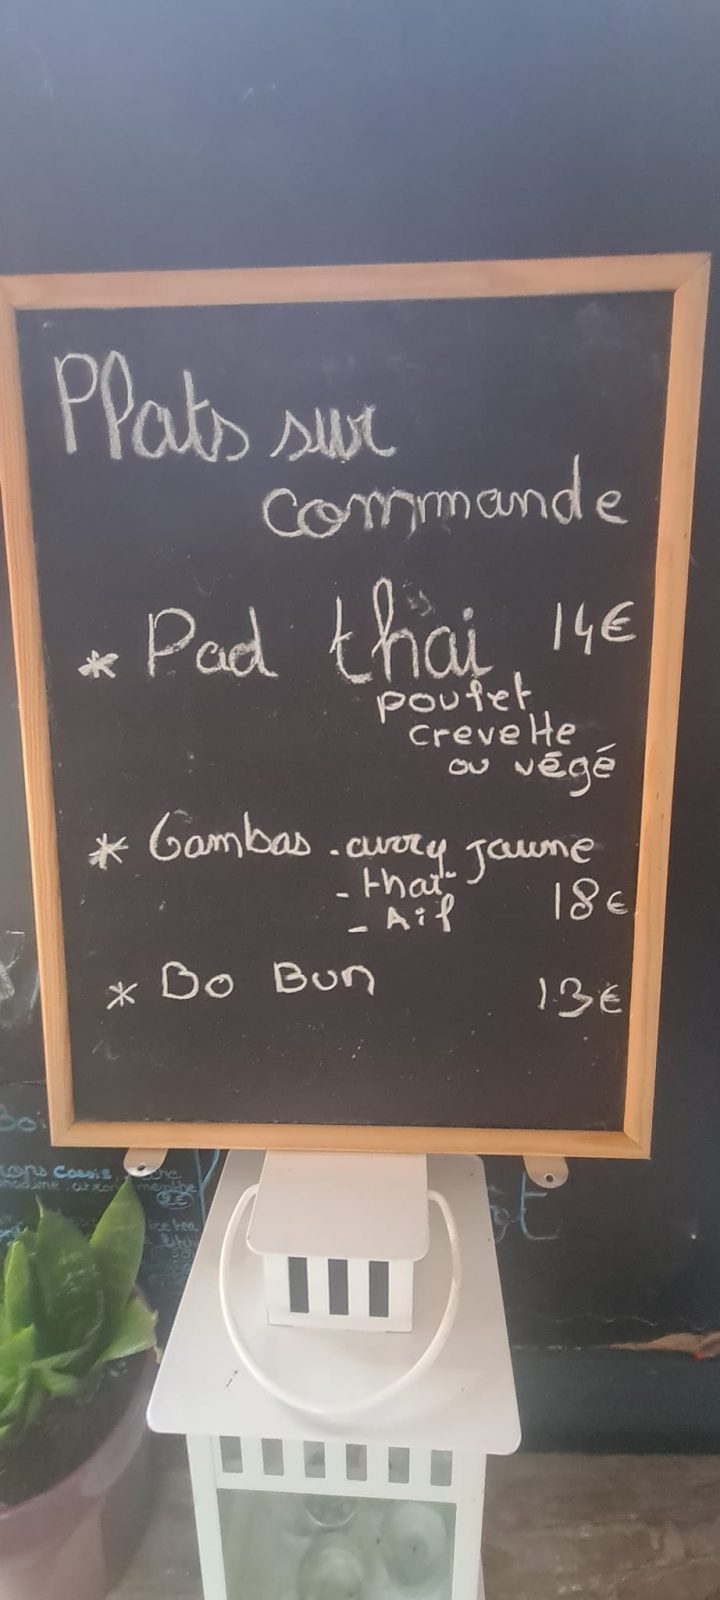 Plats sur
commande
* Pad thaï 14€
poulet
crevette
ou végé
* Gambas - curry jaune
- thaï
- Ail 18€
* Bo Bun 13€
Cassis